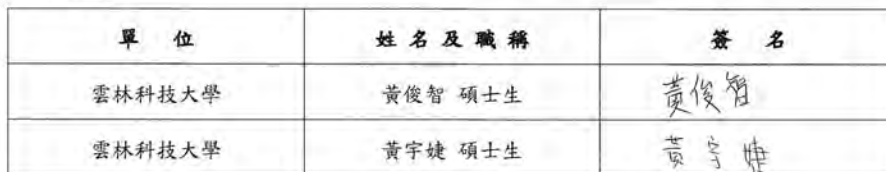 單 位 姓 名 及 職 稱 簽 名
雲林科技大學 黃俊智 碩士生 黃俊智
雲林科技大學 黃宇婕 碩士生 黃宇婕